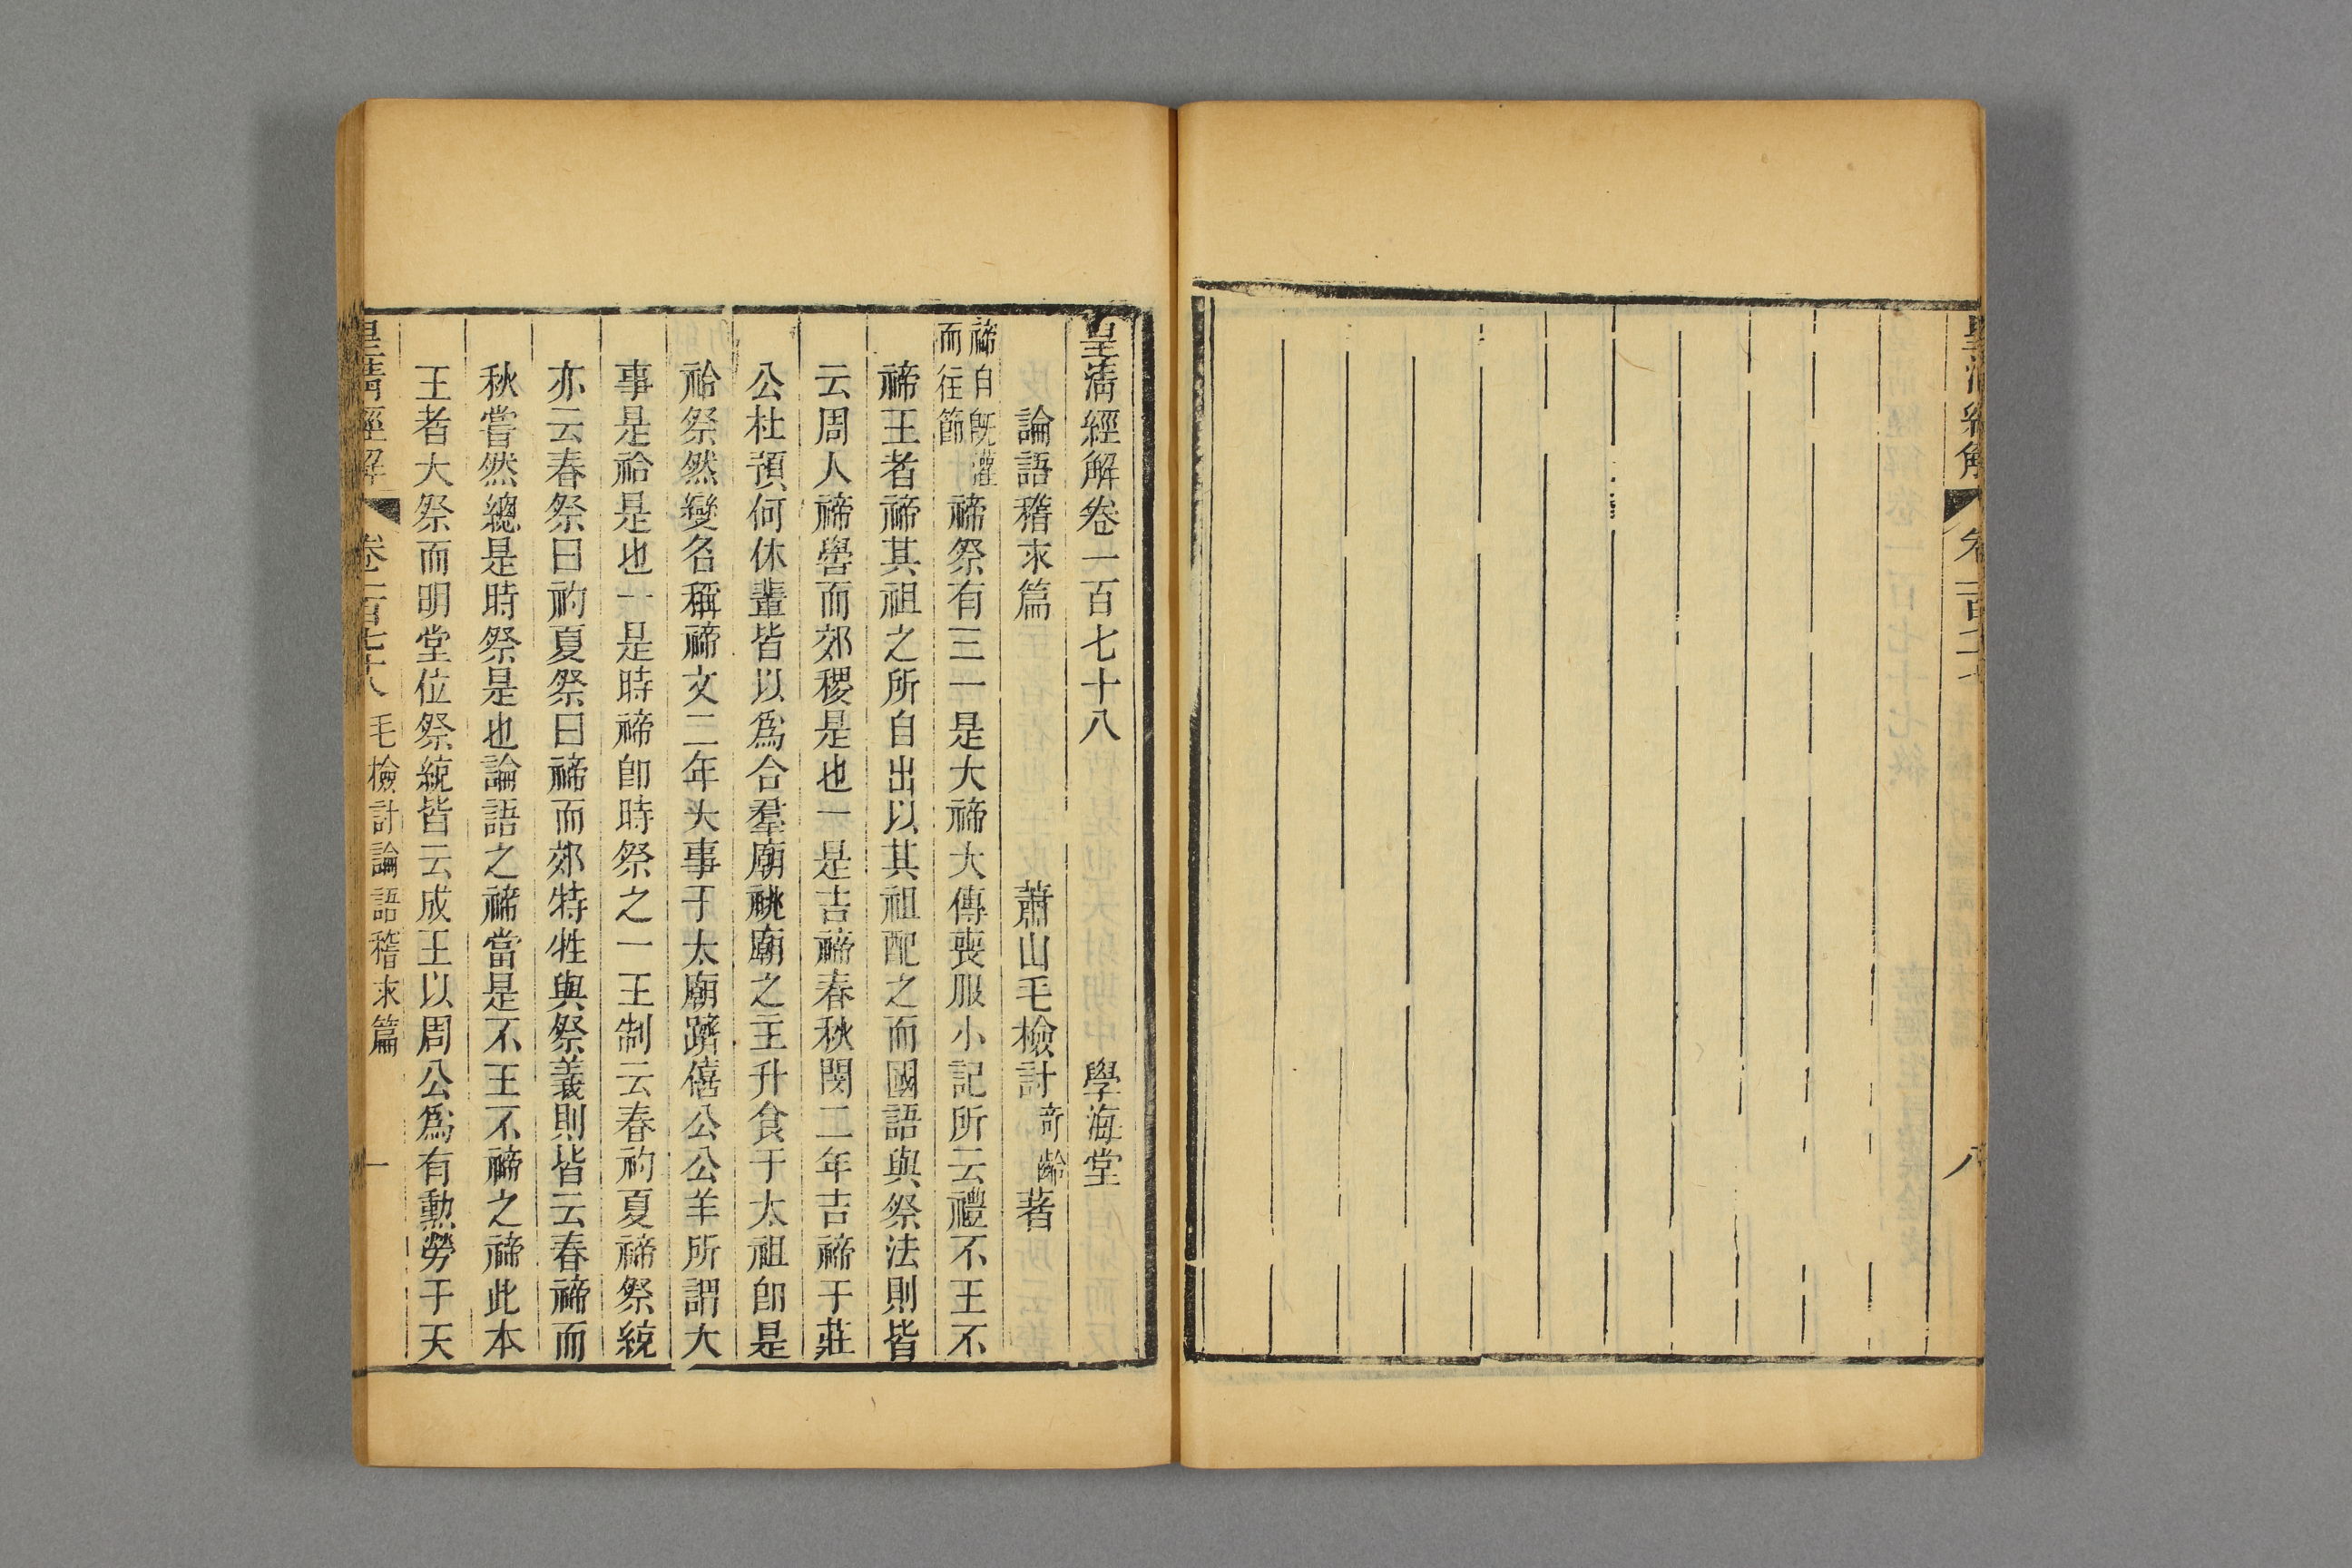 皇清經解 卷一百七十七 八
皇清經解卷一百七十八 學海堂
論語稽求篇 蕭山毛檢討奇齡著
禘自既灌
而往節
禘祭有三一是大禘大傳喪服小記所云禮不王不
禘王者禘其祖之所自出以其祖配之而國語與祭法則皆
云周人禘嚳而郊稷是也一是吉禘春秋閔二年吉禘于莊
公杜預何休輩皆以爲合羣廟祧廟之主升食于太祖卽是
祫祭然變名稱禘文二年大事于太廟躋僖公公羊所謂大
事是祫是也一是時禘卽時祭之一王制云春礿夏禘祭統
亦云春祭曰礿夏祭曰禘而郊特牲與祭義則皆云春禘而
秋嘗然總是時祭是也論語之禘當是不王不禘之禘此本
王者大祭而明堂位祭統皆云成王以周公爲有勳勞于天
皇清經解 卷一百七十八 毛檢討論語稽求篇 一